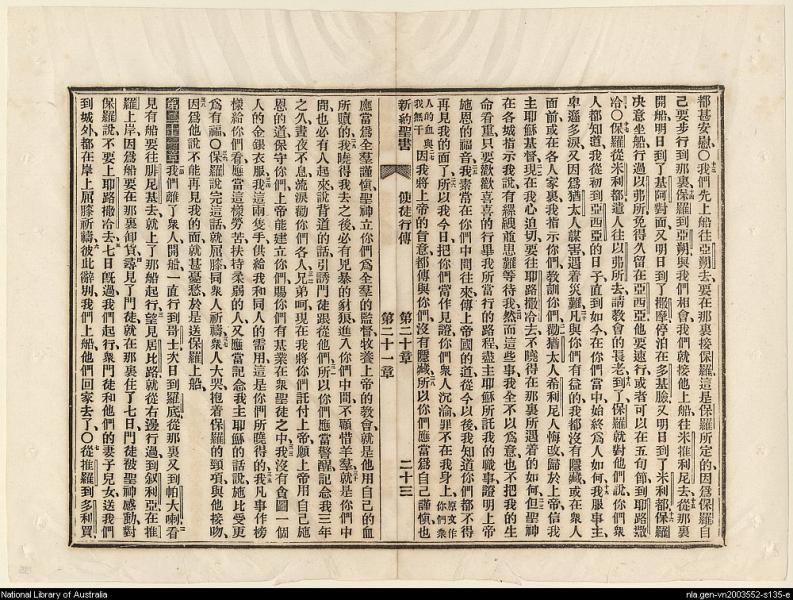 都甚安慰〇我們先上船往亞朔去要在那裏接保羅這是保羅所定的因爲保羅自
己要步行到那裏保羅到亞朔與我們相會我們就接他上船往米推利尼去從那裏
開船明日到了基阿對面又明日到了撒摩停泊在多基臉又明日到了米利都保羅
決意坐船行過以弗所免得久留在亞西亞他要速行或者可以在五旬節到耶路撒
冷〇保羅從米利都遣人往以弗所去請教會的長老到了保羅就對他們說你們衆
人都知道我從初到亞西亞的日子直到如今在你們當中始終爲人如何我服事主
卑遜多淚又因爲猶太人謀害遇着災難凡與你們有益的我都沒有隱藏或在衆人
面前或在各人家裏我指示你們教訓你們勸猶太人希利尼人悔改歸於上帝信我
主耶穌基督現在我心迫切要往耶路撒冷去不曉得在那裏所遇着的如何但聖神
在各城指示我說有縲絏患難等待我然而這些事我全不以爲意也不把我的生
命看重只要歡歡喜喜的行畢我所當行的路程盡主耶穌所託我的職事證明上帝
施恩的福音我素常在你們中間往來傳上帝國的道從今以後我知道你們都不得
再見我的面了所以我今日把你們當作見證你們衆人沉淪罪不在我身上原文作你們衆
人的血與我無干因我將上帝的旨意都傳與你們沒有隱藏所以你們應當爲自己謹愼也
新約聖書 使徒行傳 第二十章 二十三
第二十一章
應當爲全羣謹愼聖神立你們爲全羣的監督牧養上帝的教會就是他用自己的血
所贖的我曉得我去之後必有兇暴的豺狼進入你們中間不顧惜羊羣就是你們中
間也必有人起來說背道的話引誘門徒跟從他們所以你們應當警醒記念我三年
之久晝夜不息流淚勸你們各人兄弟呵現在我將你們託付上帝願上帝用自己施
恩的道保守你們上帝能建立你們賜你們有基業在衆聖徒之中我沒有貪圖一個
人的金銀衣服我這兩隻手供給我和同人的需用這是你們所曉得的我凡事作榜
樣給你們看應當這樣勞苦扶持柔弱的人又應當記念我主耶穌的話說施比受更
爲有福〇保羅說完這話就屈膝同衆人祈禱衆人大哭抱着保羅的頸項與他接吻
因爲他說不能再見我的面就甚憂愁於是送保羅上船
第二十一章我們離了衆人開船一直行到哥士次日到羅底從那裏又到帕大喇看
見有船要往腓尼基去就上了那船起行望見居比路就從右邊行過到叙利亞在推
羅上岸因爲船要在那裏卸貨尋見了門徒就在那裏住了七日門徒被聖神感動對
保羅說不要上耶路撒冷去七日旣過我們起行衆門徒和他們的妻子兒女送我們
到城外都在岸上屈膝祈禱彼此辭別我們上船他們回家去了〇從推羅到多利買
National Library of Australia
nla.gen-vn2003552-s135-e